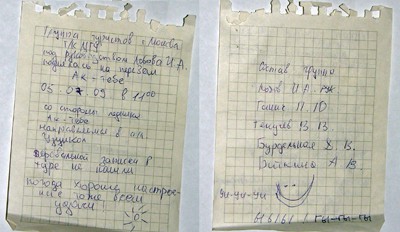 Группа туристов г. Москва
Т/К МГУ
под руководством Лобова И.А.
поднялась на перевал
Ак-Тебе
05.07.09 в 14:00
со стороны ледника
Ак-Тебе
направляемся в а/л
Узункол
Перевальной записки в
туре не нашли
погода хорошая настрое-
ние тоже всем
удачи!
Состав группы
И.А. рук
П. Ю
Текучев В. В.
Бурдельная Х. В.
А В.
Уи-уи-уи
Ы Ы Ы ! гы-гы-гы